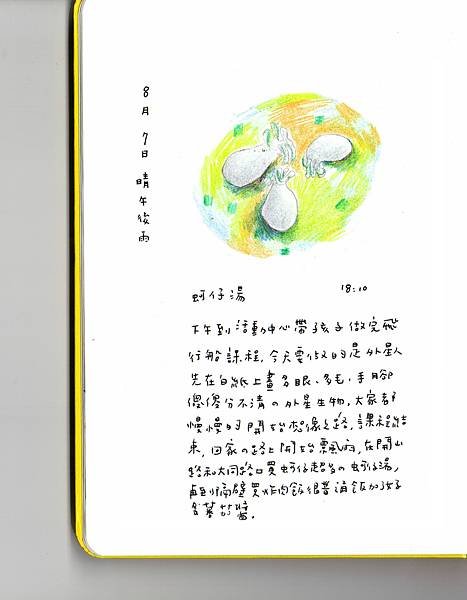 8月7日晴午後雨
蚵仔湯 18:10
下午到活動中心帶孩子做完飛
行船課程，今天要做的是外星人
先在白紙上畫多眼、多毛、手腳
傻傻分不清の外星生物，大家都
慢慢的開始想像之路，課程結
束，回家の路上開始飄雨，在開山
路和大同路口買蚵仔の蚵仔湯，
隔壁買炸肉飯